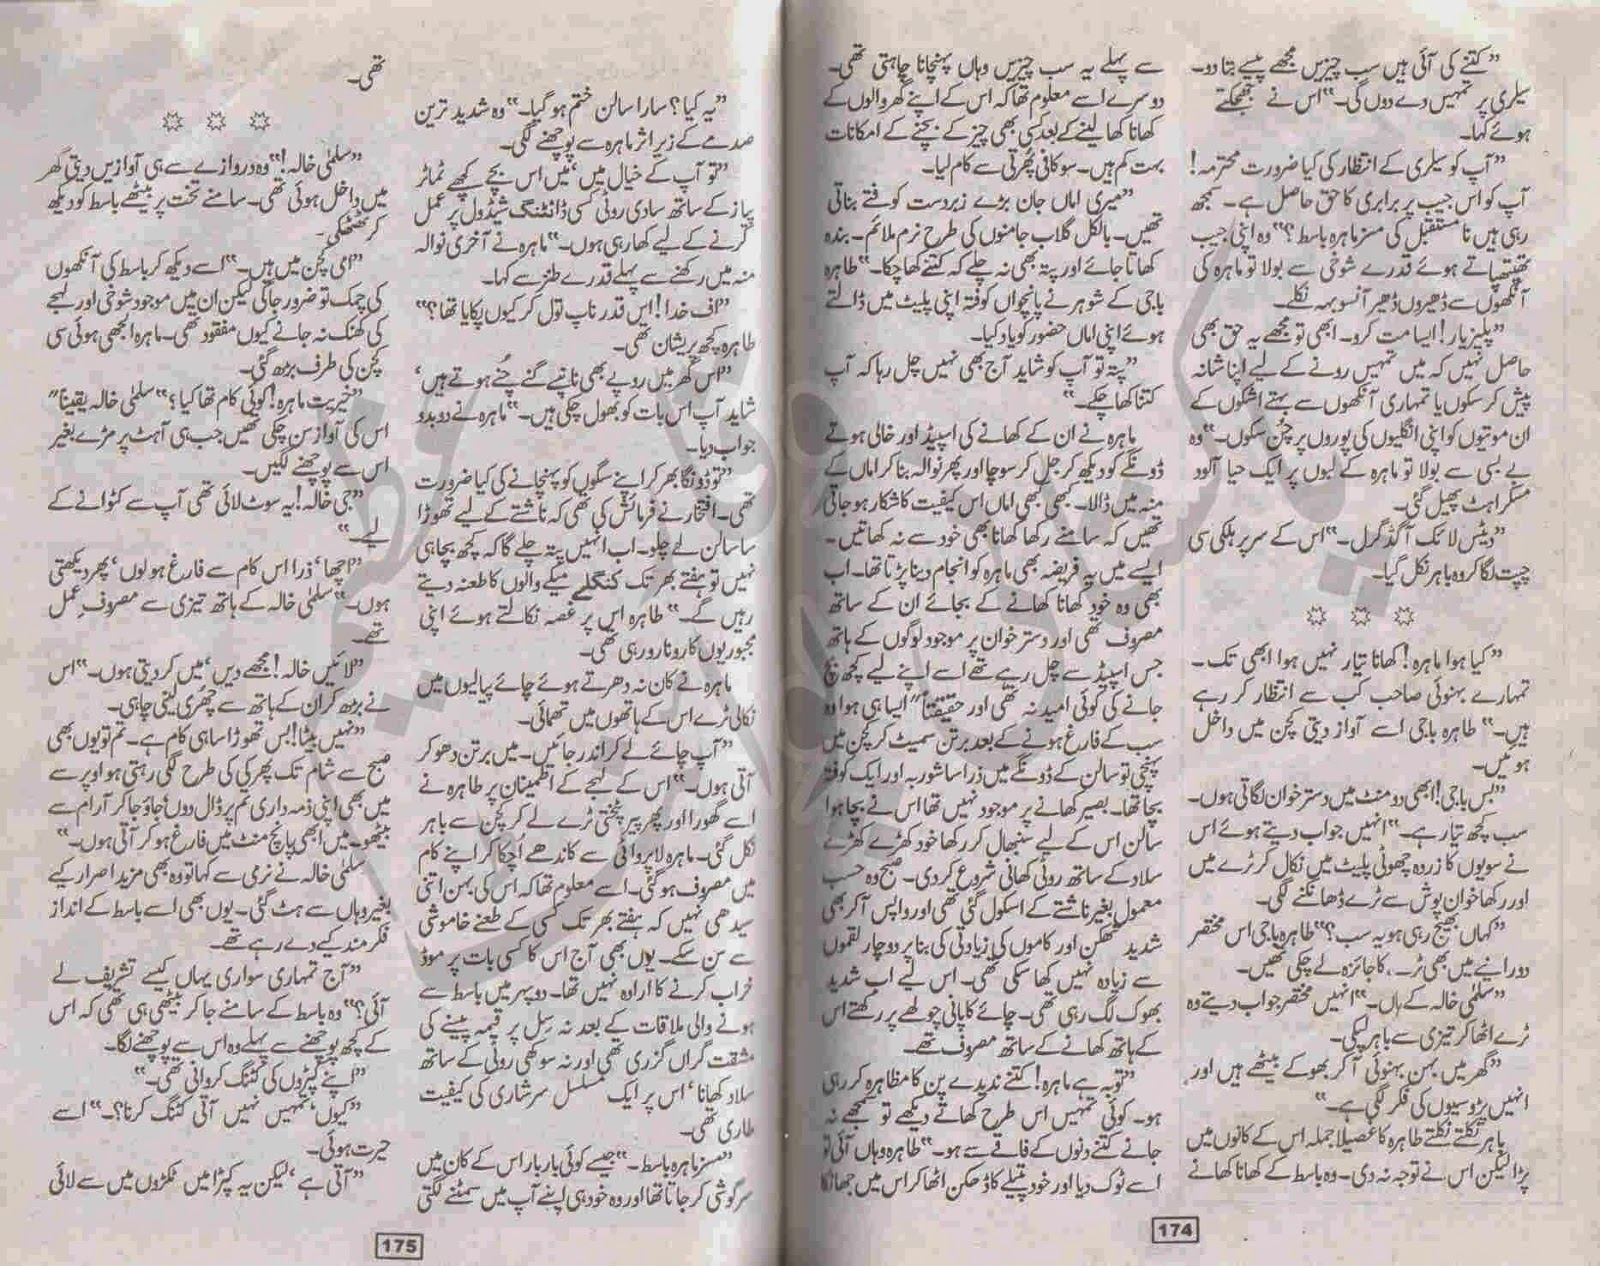 ”کتنے کی آئی ہیں سب چیزیں مجھے پیسے بتا دو۔
سیلری پر تمہیں دے دوں گی۔“ اس نے جھجکتے
ہوئے کہا۔
”آپ کو سیلری کے انتظار کی کیا ضرورت محترمہ!
آپ کو اس جیب پر برابری کا حق حاصل ہے۔ سمجھ
رہی ہیں نا مستقبل کی مسز ماہرہ باسط؟“ وہ اپنی جیب
تھپتھپاتے ہوئے قدرے شوخی سے بولا تو ماہرہ کی
آنکھوں سے ڈھیروں ڈھیر آنسو بہہ نکلے۔
”پلیز یار! ایسا مت کرو۔ ابھی تو مجھے یہ حق بھی
حاصل نہیں کہ میں تمہیں رونے کے لیے اپنا شانہ
پیش کر سکوں یا تمہاری آنکھوں سے بہتے اشکوں کے
ان موتیوں کو اپنی انگلیوں کی پوروں پر چُن سکوں۔“ وہ
بے بسی سے بولا تو ماہرہ کے لبوں پر ایک حیا آلود
مسکراہٹ پھیل گئی۔
”دیٹس لائک آ گڈ گرل۔“ اس کے سر پر ہلکی سی
چپت لگا کر وہ باہر نکل گیا۔
”کیا ہوا ماہرہ! کھانا تیار نہیں ہوا ابھی تک۔
تمہارے بہنوئی صاحب کب سے انتظار کر رہے
ہیں۔“ طاہرہ باجی اسے آواز دیتی کچن میں داخل
ہوئیں۔
”بس باجی! ابھی دو منٹ میں دستر خوان لگاتی ہوں۔
سب کچھ تیار ہے۔“ انہیں جواب دیتے ہوئے اس
نے سویوں کا زردہ چھوٹی پلیٹ میں نکال کر ٹرے میں
اور رکھا خوان پوش سے ٹرے ڈھانکنے لگی۔
”کہاں بھیج رہی ہو یہ سب؟“ طاہرہ باجی اس مختصر
دورانیے میں بھی ٹرے کا جائزہ لے چکی تھیں۔
”سلمٰی خالہ کے ہاں۔“ انہیں مختصر جواب دیتے وہ
ٹرے اٹھا کر تیزی سے باہر لپکی۔
”گھر میں بہن بہنوئی آ کر بھوکے بیٹھے ہیں اور
انہیں پڑوسیوں کی فکر لگی ہے۔“
باہر نکلتے نکلتے طاہرہ کا غصیلا جملہ اس کے کانوں میں
پڑا لیکن اس نے توجہ نہ دی۔ وہ باسط کے کھانا کھانے
سے پہلے یہ سب چیزیں وہاں پہنچانا چاہتی تھی۔
دوسرے اسے معلوم تھا کہ اس کے اپنے گھر والوں کے
کھانا کھا لینے کے بعد کسی بھی چیز کے بچنے کے امکانات
بہت کم ہیں۔ سو کافی پھرتی سے کام لیا۔
”میری اماں جان بڑے زبردست کوفتے بناتی
تھیں۔ بالکل گلاب جامنوں کی طرح نرم ملائم۔ بندہ
کھاتا جائے اور پتہ بھی نہ چلے کہ کتنے کھا چکا۔“ طاہرہ
باجی کے شوہر نے پانچواں کوفتہ اپنی پلیٹ میں ڈالتے
ہوئے اپنی اماں حضور کو یاد کیا۔
”پتہ تو آپ کو شاید آج بھی نہیں چل رہا کہ آپ
کتنا کھا چکے۔“
ماہرہ نے ان کے کھانے کی اسپیڈ اور خالی ہوتے
ڈونگے کو دیکھ کر جل کر سوچا اور پھر نوالہ بنا کر اماں کے
منہ میں ڈالا۔ کبھی کبھی اماں اس کیفیت کا شکار ہو جاتی
تھیں کہ سامنے رکھا کھانا بھی خود سے نہ کھاتیں۔
ایسے میں یہ فریضہ بھی ماہرہ کو انجام دینا پڑتا تھا۔ اب
بھی وہ خود کھانا کھانے کے بجائے ان کے ساتھ
مصروف تھی اور دستر خوان پر موجود لوگوں کے ہاتھ
جس اسپیڈ سے چل رہے تھے اسے اپنے لیے کچھ بچ
جانے کی کوئی امید نہ تھی اور حقیقتاً ”ایسا ہی ہوا وہ
سب کے فارغ ہونے کے بعد برتن سمیٹ کر کچن میں
پہنچی تو سالن کے ڈونگے میں ذرا سا شوربہ اور ایک کوفتہ
بچا تھا۔ بصیر کھانے پر موجود نہیں تھا اس نے بچا ہوا
سالن اس کے لیے سنبھال کر رکھا خود کھڑے کھڑے
سلاد کے ساتھ روٹی کھانی شروع کر دی۔ صبح وہ حسب
معمول بغیر ناشتے کے اسکول گئی تھی اور واپس آ کر بھی
شدید تھکن اور کاموں کی زیادتی کی بنا پر دو چار لقموں
سے زیادہ نہیں کھا سکی تھی۔ اس لیے اب شدید
بھوک لگ رہی تھی۔ چائے کا پانی چولہے پر رکھتے اس
کے ہاتھ کھانے کے ساتھ مصروف تھے۔
”توبہ ہے ماہرہ! کتنے ندیدے پن کا مظاہرہ کر رہی
ہو۔ کوئی تمہیں اس طرح کھاتے دیکھے تو سمجھے نہ
جانے کتنے دنوں کے فاقے سے ہو۔“ طاہرہ وہاں آئی تو
اسے ٹوک دیا اور خود پتیلے کا ڈھکن اٹھا کر اس میں جھانکا
174
”یہ کیا؟ سارا سالن ختم ہو گیا۔“ وہ شدید ترین
صدمے کے زیر اثر ماہرہ سے پوچھنے لگی۔
”تو آپ کے خیال میں‘ میں اس بچے کھچے ٹماٹر
پیاز کے ساتھ سادی روٹی کسی ڈائٹنگ شیڈول پر عمل
کرنے کے لیے کھا رہی ہوں۔“ ماہرہ نے آخری نوالہ
منہ میں رکھنے سے پہلے قدرے طنز سے کہا۔
”اف خدا! اس قدر ناپ تول کر کیوں پکایا تھا؟“
طاہرہ کچھ پریشان تھی۔
”اس گھر میں روپے بھی ناپے گنے چُنے ہوتے ہیں‘
شاید آپ اس بات کو بھول چکی ہیں۔“ ماہرہ نے دوبدو
جواب دیا۔
”تو ڈونگا بھر کر اپنے سگوں کو پہنچانے کی کیا ضرورت
تھی۔ افتخار نے فرمائش کی تھی کہ ناشتے کے لیے تھوڑا
سا سالن لے چلو۔ اب انہیں پتہ چلے گا کہ کچھ بچا ہی
نہیں تو ہفتے بھر تک کنگلے میکے والوں کا طعنہ دیتے
رہیں گے۔“ طاہرہ اس پر غصہ نکالتے ہوئے اپنی
مجبوریوں کا رونا رو رہی تھی۔
ماہرہ نے کان نہ دھرتے ہوئے چائے پیالیوں میں
نکالی ٹرے اس کے ہاتھوں میں تھمائی۔
”آپ چائے لے کر اندر جائیں۔ میں برتن دھو کر
آتی ہوں۔“ اس کے لہجے کے اطمینان پر طاہرہ نے
اسے گھورا اور پھر پیر پٹختی ٹرے لے کر کچن سے باہر
نکل گئی۔ ماہرہ لاپروائی سے کاندھے اُچکا کر اپنے کام
میں مصروف ہو گئی۔ اسے معلوم تھا کہ اس کی بہن اتنی
سیدھی نہیں کہ ہفتے بھر تک کسی کے طعنے خاموشی
سے سن سکے۔ یوں بھی آج اس کا کسی بات پر موڈ
خراب کرنے کا ارادہ نہیں تھا۔ دوپہر میں باسط سے
ہونے والی ملاقات کے بعد نہ سِل پر قیمہ پیسنے کی
مشقت گراں گزری تھی اور نہ سوکھی روٹی کے ساتھ
سلاد کھانا‘ اس پر ایک مسلسل سرشاری کی کیفیت
طاری تھی۔
”مسز ماہرہ باسط۔“ جیسے کوئی بار بار اس کے کان میں
سرگوشی کر جاتا تھا اور وہ خود ہی اپنے آپ میں سمٹنے لگتی
تھی۔
”سلمٰی خالہ!“ وہ دروازے سے ہی آوازیں دیتی گھر
میں داخل ہوئی تھی۔ سامنے تخت پر بیٹھے باسط کو دیکھ
کر ٹھٹھکی۔
”امی کچن میں ہیں۔“ اسے دیکھ کر باسط کی آنکھوں
کی چمک تو ضرور جاگی لیکن ان میں موجود شوخی اور لہجے
کی کھنک نہ جانے کیوں مفقود تھی۔ ماہرہ الجھی ہوئی سی
کچن کی طرف بڑھ گئی۔
”خیریت ماہرہ! کوئی کام تھا کیا؟“ سلمٰی خالہ یقیناً“
اس کی آواز سن چکی تھیں جب ہی آہٹ پر مڑے بغیر
اس سے پوچھنے لگیں۔
”جی خالہ! یہ سوٹ لائی تھی آپ سے کٹوانے کے
لیے۔“
”اچھا‘ ذرا اس کام سے فارغ ہو لوں‘ پھر دیکھتی
ہوں۔“ سلمٰی خالہ کے ہاتھ تیزی سے مصروفِ عمل
تھے۔
”لائیں خالہ! مجھے دیں‘ میں کر دیتی ہوں۔“ اس
نے بڑھ کر ان کے ہاتھ سے چھُری لینی چاہی۔
”نہیں بیٹا! بس تھوڑا سا ہی کام ہے۔ تم تو یوں بھی
صبح سے شام تک پھرکی کی طرح لگی رہتی ہو اوپر سے
میں بھی اپنی ذمہ داری تم پر ڈال دوں‘ جاؤ جا کر آرام سے
بیٹھو۔ میں ابھی پانچ منٹ میں فارغ ہو کر آتی ہوں۔“
سلمٰی خالہ نے نرمی سے کہا تو وہ بھی مزید اصرار کیے
بغیر وہاں سے ہٹ گئی۔ یوں بھی اسے باسط کے انداز
فکر مند کیے دے رہے تھے۔
”آج تمہاری سواری یہاں کیسے تشریف لے
آئی؟“ وہ باسط کے سامنے جا کر بیٹھی ہی تھی کہ اس
کے کچھ پوچھنے سے پہلے وہ اس سے پوچھنے لگا۔
”اپنے کپڑوں کی کٹنگ کروانی تھی۔“
”کیوں‘ تمہیں نہیں آتی کٹنگ کرنا؟۔“ اسے
حیرت ہوئی۔
”آتی ہے‘ لیکن یہ کپڑا میں ٹکڑوں میں سے لائی
175